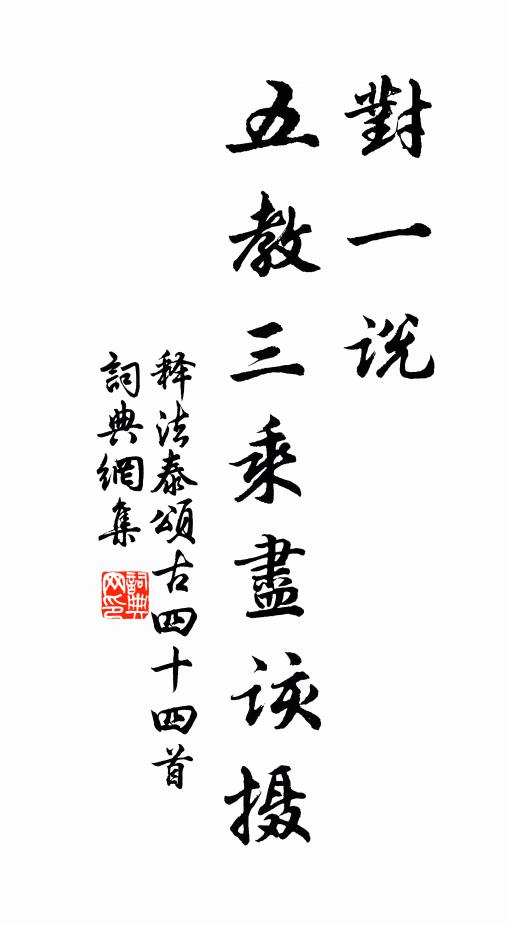 對一说
五教三乘盡该摄
释法泰頌古四十四首
詞典網集
詞典網印